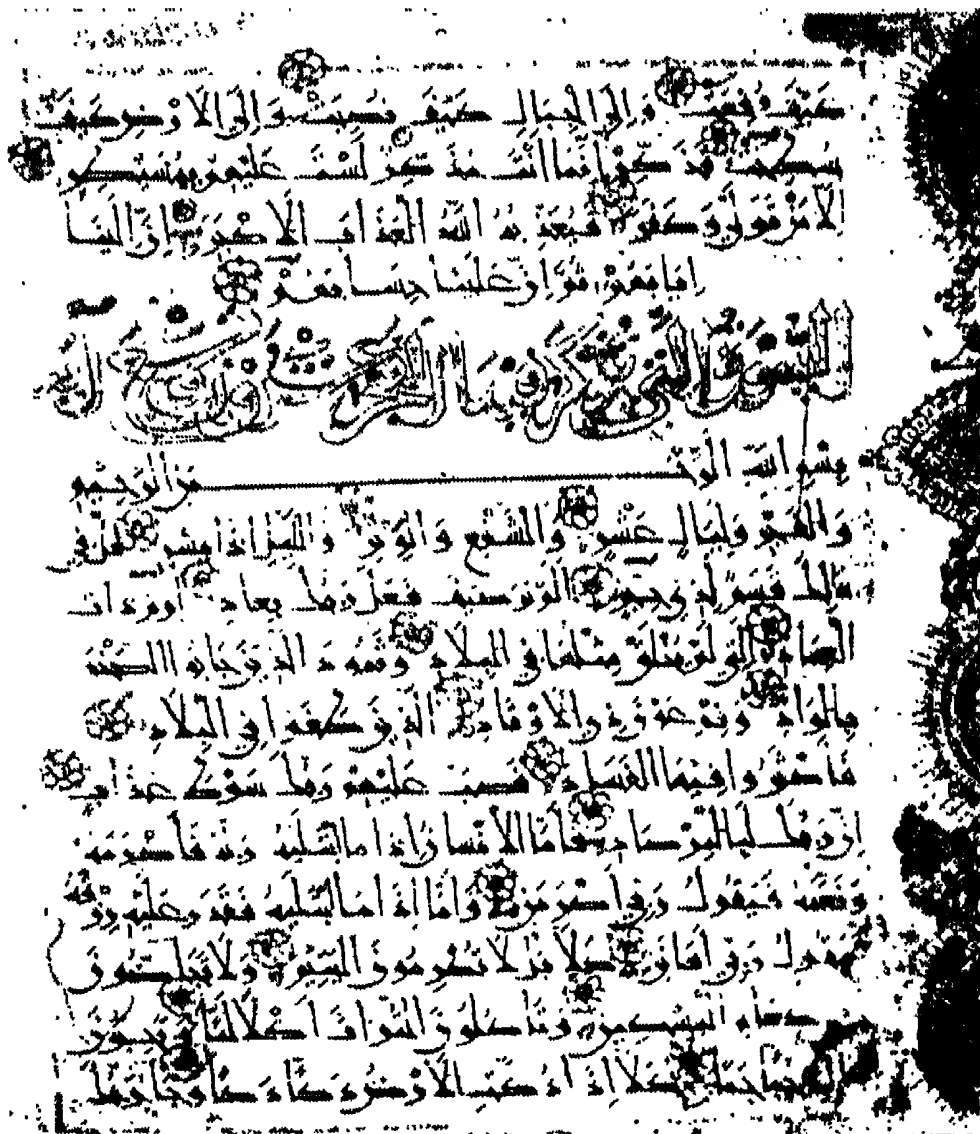 كيف رفعت وإلى الجبال كيف نصبت وإلى الأرض كيف
سطحت فذكر إنما أنت مذكر لست عليهم بمصيطر
إلا من تولى وكفر فيعذبه الله العذاب الأكبر إن إلينا
إيابهم ثم إن علينا حسابهم
السورة التي يذكر فيها الفجر
بسم الله الرحمن الرحيم
والفجر وليال عشر والشفع والوتر واليل إذا يسر هل في
ذلك قسم لذي حجر ألم تر كيف فعل ربك بعاد إرم ذات
العماد التي لم يخلق مثلها في البلاد وثمود الذين جابوا الصخر
بالواد وفرعون ذي الأوتاد الذين طغوا في البلاد
فأكثروا فيها الفساد فصب عليهم ربك سوط عذاب
إن ربك لبالمرصاد فأما الإنسان إذا ما ابتليه ربه فأكرمه
ونعمه فيقول ربي أكرمن وأما إذا ما ابتليه فقدر عليه رزقه
فيقول ربي أهانن كلا بل لا تكرمون اليتيم ولا تحاضون
على طعام المسكين وتأكلون التراث أكلا لما وتحبون
المال حبا جما كلا إذا دكت الأرض دكا دكا وجاء ربك